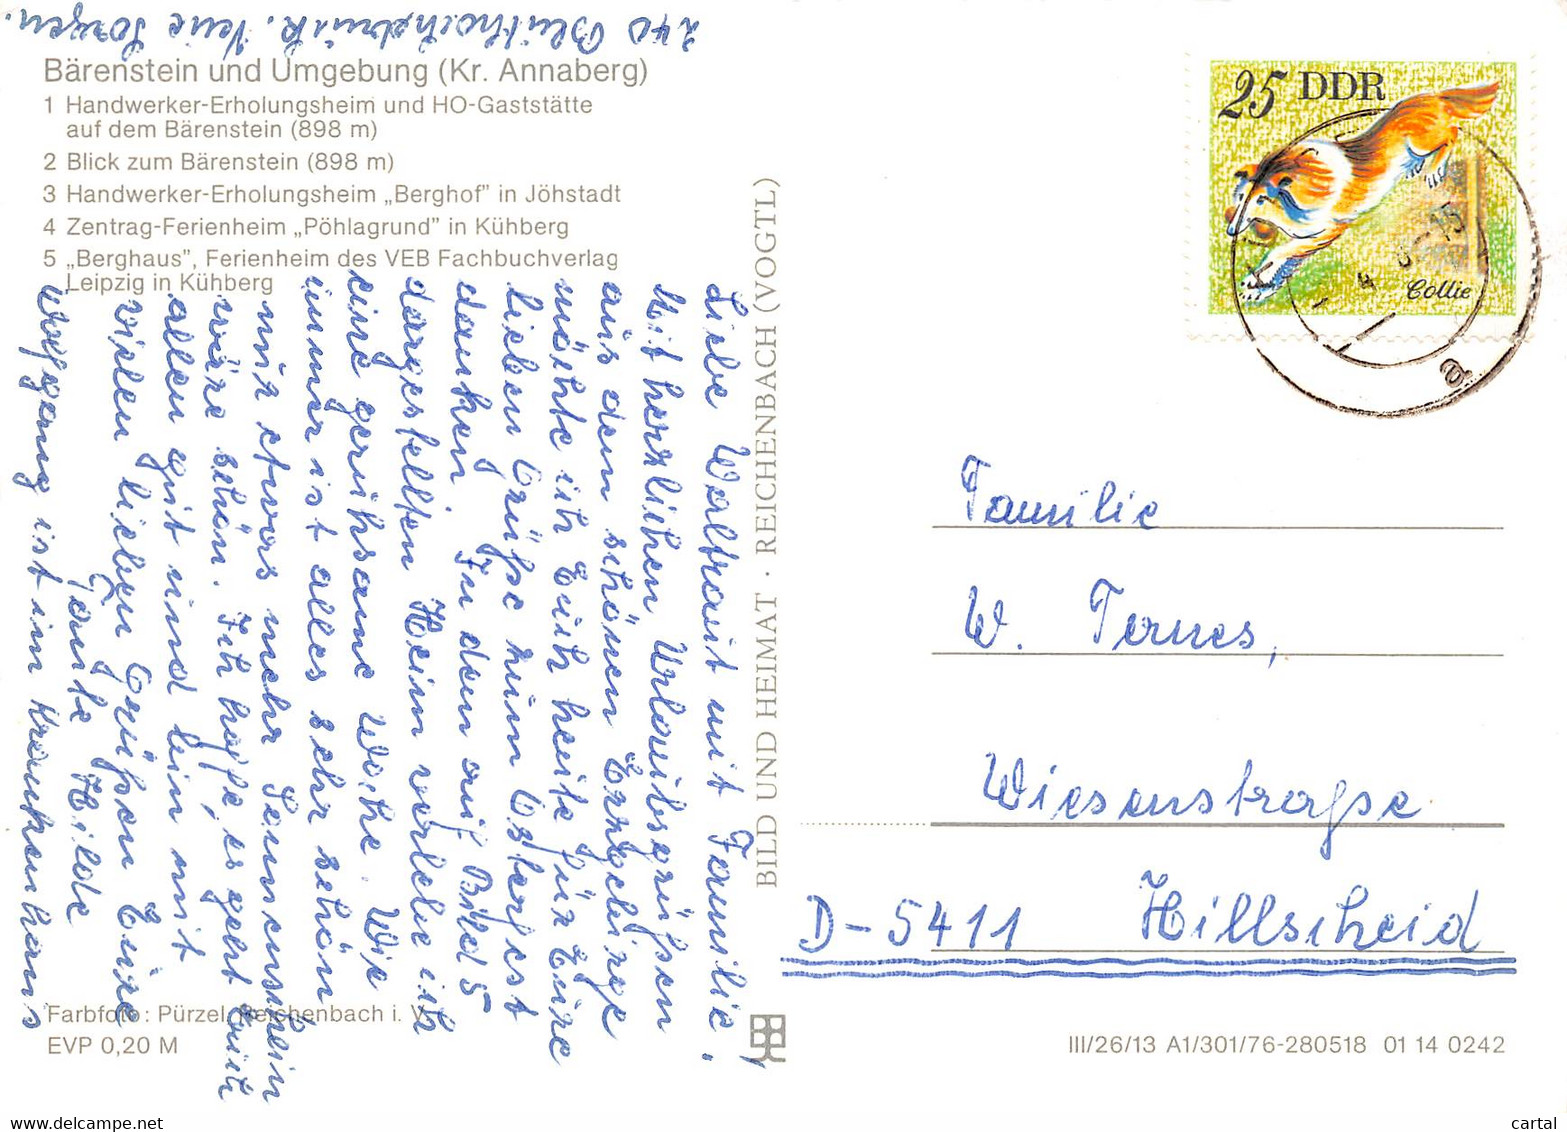 Bärenstein und Umgebung (Kr. Annaberg)
1 Handwerker-Erholungsheim und HO-Gaststätte
auf dem Bärenstein (898 m)
2 Blick zum Bärenstein (898 m)
3 Handwerker-Erholungsheim „Berghof" in Jöhstadt
4 Zentrag-Ferienheim „Pöhlagrund" in Kühberg
5 „Berghaus", Ferienheim des VEB Fachbuchverlag
Leipzig in Kühberg
Liebe Waltraut mit Familie,
Mit herzlichen Urlaubsgrüßen
aus dem schönen Erzgebirge
möchte ich Euch heute für Eure
lieben Grüße zum Osterfest
danken. In dem auf Bild 5
dargestellten Heim verlebe ich
eine geruhsame Woche. Wie
immer ist alles sehr schön
nur etwas mehr Sonnenschein
wäre schön. Ich hoffe, es geht Euch
allen gut und bin mit
vielen lieben Grüßen Eure
Tante Hilde
Wolfgang ist im Krankenhaus
240 Sorgen.
Farbfoto: Pürzel, Reichenbach i. V.
EVP 0,20 M
BILD UND HEIMAT · REICHENBACH (VOGTL)
25 DDR
Collie
15
a
Familie
W. Ternes,
Wiesenstraße
D-5411 Hillscheid
III/26/13 A1/301/76-280518 01 14 0242
cartal